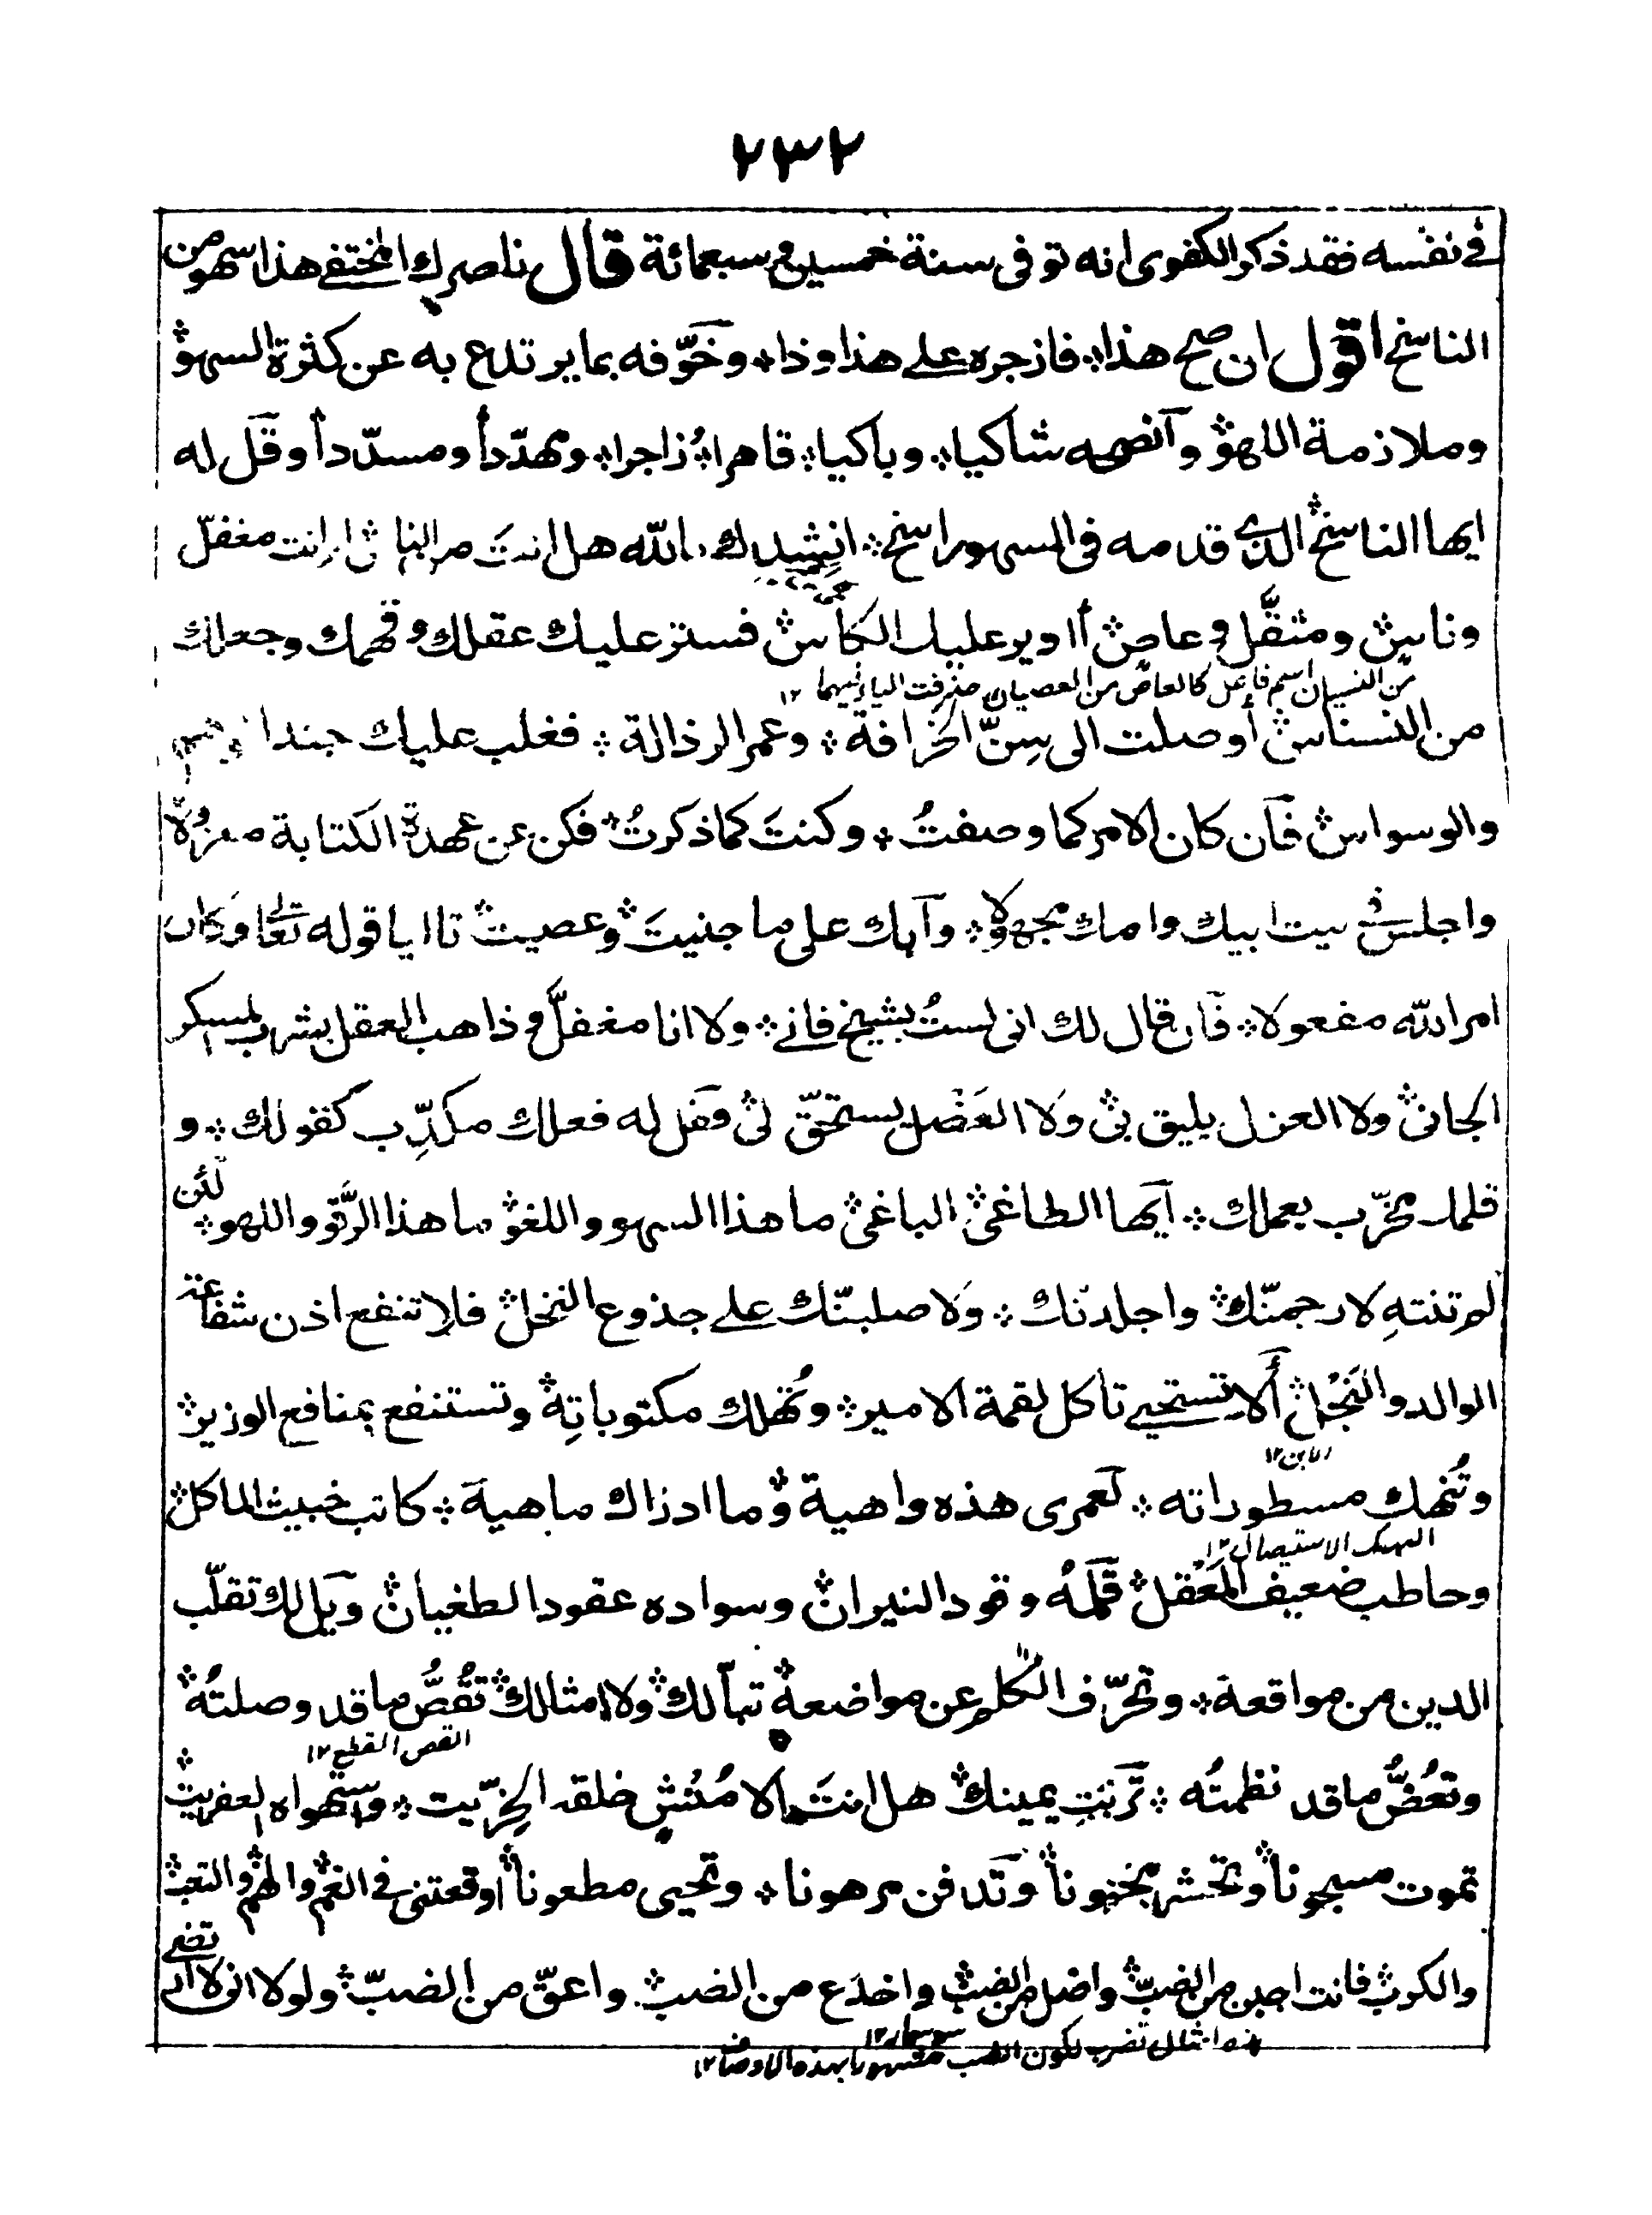 ٢٣٢
في نفسه فقد ذكر الكفوى انه توفى سنة خمسين و سبعمائة قال ناصرك المختفى هذا سهو من
الناسخ اقول ان صح هذا؞ فازجره على هذا وذا؞ وخَوِّفه بما يرتدع به عن كثرة السهو؞
وملازمة اللهو؞ وآنصحه شاكيا؞ وباكيا؞ قاهرا؞ زاجرا؞ ومهدّدا ومسدّدا وقل له
ايها الناسخ؞ الذى قدمه فى السهو راسخ؞ انشدك بالله هل انت من الناس؞ ام انت مغفّل
وناسٍ؞ ومثقَّل وعاصٍ؞ أادير عليك الكأس؞ فستر عليك عقلك وفهمك وجعلك
من النسيان اسم فاعل كالعاص من العصيان حذفت الياء فيهما ١٢
من النسناس؞ أوصلت الى سِنّ الخرافة؞ وعمر الرذالة؞ فغلب عليك جندا
والوسواس؞ فان كان الامر كما وصفتُ؞ وكنتَ كما ذكرتُ؞ فكن عن عهدة الكتابة معزولا؞
واجلس في بيت ابيك وامك مجهولا؞ وآبك على ما جنيتَ؞ وعصيت؞ تاليا قوله تعالى وكان
امر الله مفعولا؞ فان قال لك انى لستُ بشيخ فانى؞ ولا انا مغفّل وذاهب العقل بشرب المسكر
الجانى؞ ولا العزل يليق بى؞ ولا العَضْل يستحقّ لى؞ فقل له فعلك مكذِّب كقولك؞ و
قلمك مخرّب بعملك؞ آيها الطاغى؞ الباغى؞ ما هذا السهو واللغو؞ ما هذا الزَّهو واللهو؞ لئن
لم تنتهِ لارجمنّك؞ واجلدنّك؞ ولاصلبنّك على جذوع النخل؞ فلا تنفع اذن شفاعة
الوالد والنَّجْل؞ ألا تستحيى تأكل لقمة الامير؞ وتُهلك مكتوباتِه؞ وتستنفع بمنافع الوزير؞
الابن ١٢
وتُنهك مسطوراته؞ لعمرى هذه واهية؞ وما ادراك ماهية؞ كاتب خبيث الماكل؞
النهك الاستيصال ١٢
وحاطب ضعيف المَعْقل؞ قلمُه وقود النيران؞ وسواده عقود الطغيان؞ ويل لك تقلّب
الدين من مواقعه؞ وتحرّف الكلم عن مواضعه؞ تبّا لك؞ ولامثالك؞ تَقُصُّ ما قد وصلتُه؞
القص القطع ١٢
وتعُضُّ ما قد نظمتُه؞ تَرِبَتِ يمينك؞ هل انتَ الا مُنْشٍ خلقه الخِرّيت؞ واستهواه العفريت؞
تموت مسجونا؞ وتحشر مجنونا؞ وتدفن مرهونا؞ وتحيى مطعونا؞ اوقعتنى في الغم؞ والهم؞ والتعب؞
والكرب؞ فانت اجبن من الضبّ؞ واضل من الضب؞ واخدع من الضب؞ واعقّ من الضبّ؞ ولولا انى لا ارتضى
سوسمار ١٢
هذه امثال تضرب لكون الضب مشهورا بهذه الاوصاف ١٢